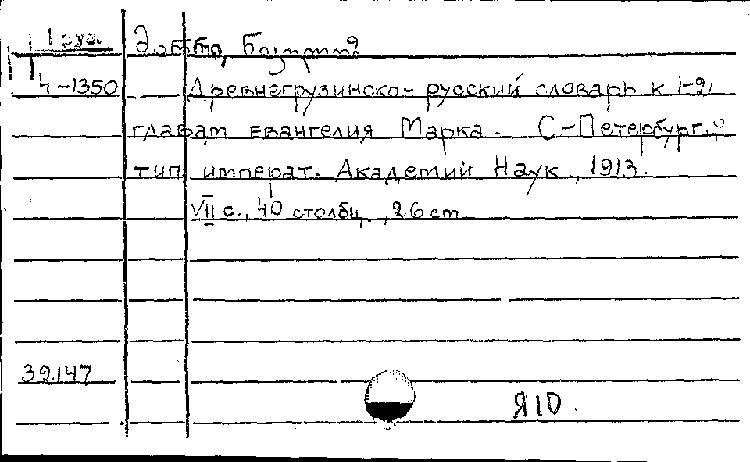 1 экз.
4-1350 Древнегрузинско-русский словарь к 1-2
главам евангелия Марка. С-Петербург,
тип. императ. Академий Наук, 1913.
VII с., 40 столбц., 26 cm
39.147
Я10.